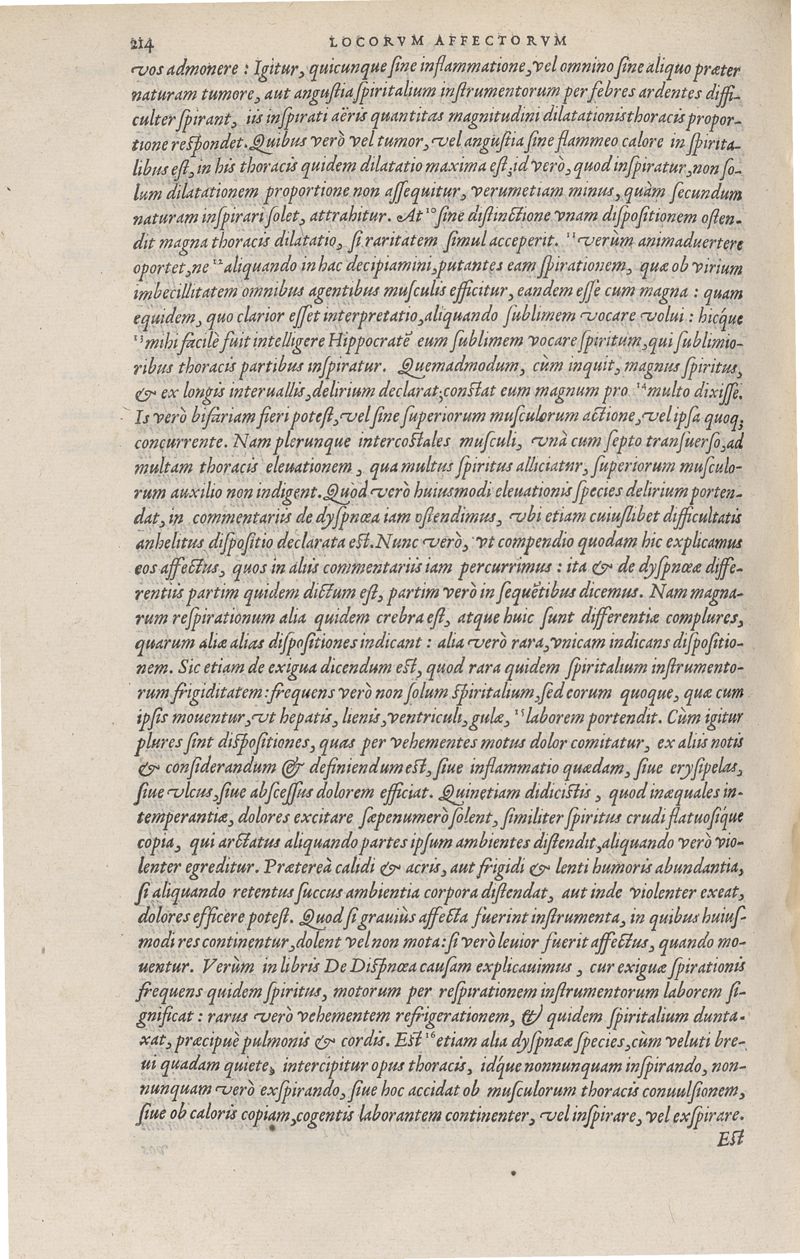 214 LOCORVM AFFECTORVM
vos admonere : Igitur, quicunque ſine inflammatione, vel omnino ſine aliquo præter
naturam tumore, aut anguſtia ſpiritalium inſtrumentorum per febres ardentes diffi-
culter ſpirant, iis inſpirati aëris quantitas magnitudini dilatationis thoracis propor-
tione reſpondet. Quibus verò vel tumor, vel anguſtia ſine flammeo calore in ſpirita-
libus eſt, in his thoracis quidem dilatatio maxima eſt, id verò, quod inſpiratur, non ſo-
lum dilatationem proportione non aſſequitur, verumetiam minus, quàm ſecundum
naturam inſpirari ſolet, attrahitur. At ¹⁰ſine diſtinctione vnam diſpoſitionem oſten-
dit magna thoracis dilatatio, ſi raritatem ſimul acceperit. ¹¹verùm animaduertere
oportet, ne ¹²aliquando in hac decipiamini, putantes eam ſpirationem, quæ ob virium
imbecillitatem omnibus agentibus muſculis efficitur, eandem eſſe cum magna : quam
equidem, quo clarior eſſet interpretatio, aliquando ſublimem vocare volui : hicq́ue
¹³mihi facilè fuit intelligere Hippocratẽ eum ſublimem vocare ſpiritum, qui ſublimio-
ribus thoracis partibus inſpiratur. Quemadmodum, cùm inquit, magnus ſpiritus,
& ex longis interuallis, delirium declarat; conſtat eum magnum pro ¹⁴multo dixiſſe.
Is verò bifariam fieri poteſt, vel ſine ſuperiorum muſculorum actione, vel ipſa quoq;
concurrente. Nam plerunque intercoſtales muſculi, vnà cum ſepto tranſuerſo, ad
multam thoracis eleuationem, qua multus ſpiritus alliciatur, ſuperiorum muſculo-
rum auxilio non indigent. Quòd verò huiusmodi eleuationis ſpecies delirium porten-
dat, in commentariis de dyſpnœa iam oſtendimus, vbi etiam cuiuſlibet difficultatis
anhelitus diſpoſitio declarata eſt. Nunc verò, vt compendio quodam hic explicamus
eos affectus, quos in aliis commentariis iam percurrimus : ita & de dyſpnœæ diffe-
rentiis partim quidem dictum eſt, partim verò in ſequẽtibus dicemus. Nam magna-
rum reſpirationum alia quidem crebra eſt, atque huic ſunt differentiæ complures,
quarum aliæ alias diſpoſitiones indicant : alia verò rara, vnicam indicans diſpoſitio-
nem. Sic etiam de exigua dicendum eſt, quod rara quidem ſpiritalium inſtrumento-
rum frigiditatem: frequens verò non ſolum ſpiritalium, ſed eorum quoque, quæ cum
ipſis mouentur, vt hepatis, lienis, ventriculi, gulæ, ¹⁵laborem portendit. Cùm igitur
plures ſint diſpoſitiones, quas per vehementes motus dolor comitatur, ex aliis notis
& conſiderandum & definiendum eſt, ſiue inflammatio quædam, ſiue eryſipelas,
ſiue vlcus, ſiue abſceſſus dolorem efficiat. Quinetiam didiciſtis, quod inæquales in-
temperantiæ, dolores excitare ſæpenumerò ſolent, ſimiliter ſpiritus crudi flatuoſiq́ue
copia, qui arctatus aliquando partes ipſum ambientes diſtendit, aliquando verò vio-
lenter egreditur. Prætereà calidi & acris, aut frigidi & lenti humoris abundantia,
ſi aliquando retentus ſuccus ambientia corpora diſtendat, aut inde violenter exeat,
dolores efficere poteſt. Quod ſi grauiùs affecta fuerint inſtrumenta, in quibus huiuſ-
modi res continentur, dolent vel non mota: ſi verò leuior fuerit affectus, quando mo-
uentur. Verùm in libris De Diſpnœa cauſam explicauimus, cur exiguæ ſpirationis
frequens quidem ſpiritus, motorum per reſpirationem inſtrumentorum laborem ſi-
gnificat : rarus verò vehementem refrigerationem, & quidem ſpiritalium dunta-
xat, præcipuè pulmonis & cordis. Eſt ¹⁶etiam alia dyſpnææ ſpecies, cùm veluti bre-
ui quadam quiete, intercipitur opus thoracis, idq́ue nonnunquam inſpirando, non-
nunquam verò exſpirando, ſiue hoc accidat ob muſculorum thoracis conuulſionem,
ſiue ob caloris copiam, cogentis laborantem continenter, vel inſpirare, vel exſpirare.
Eſt